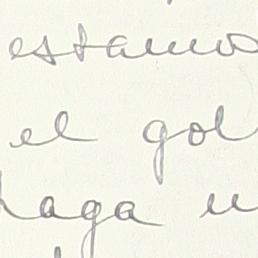 estamo
el gol
haga u